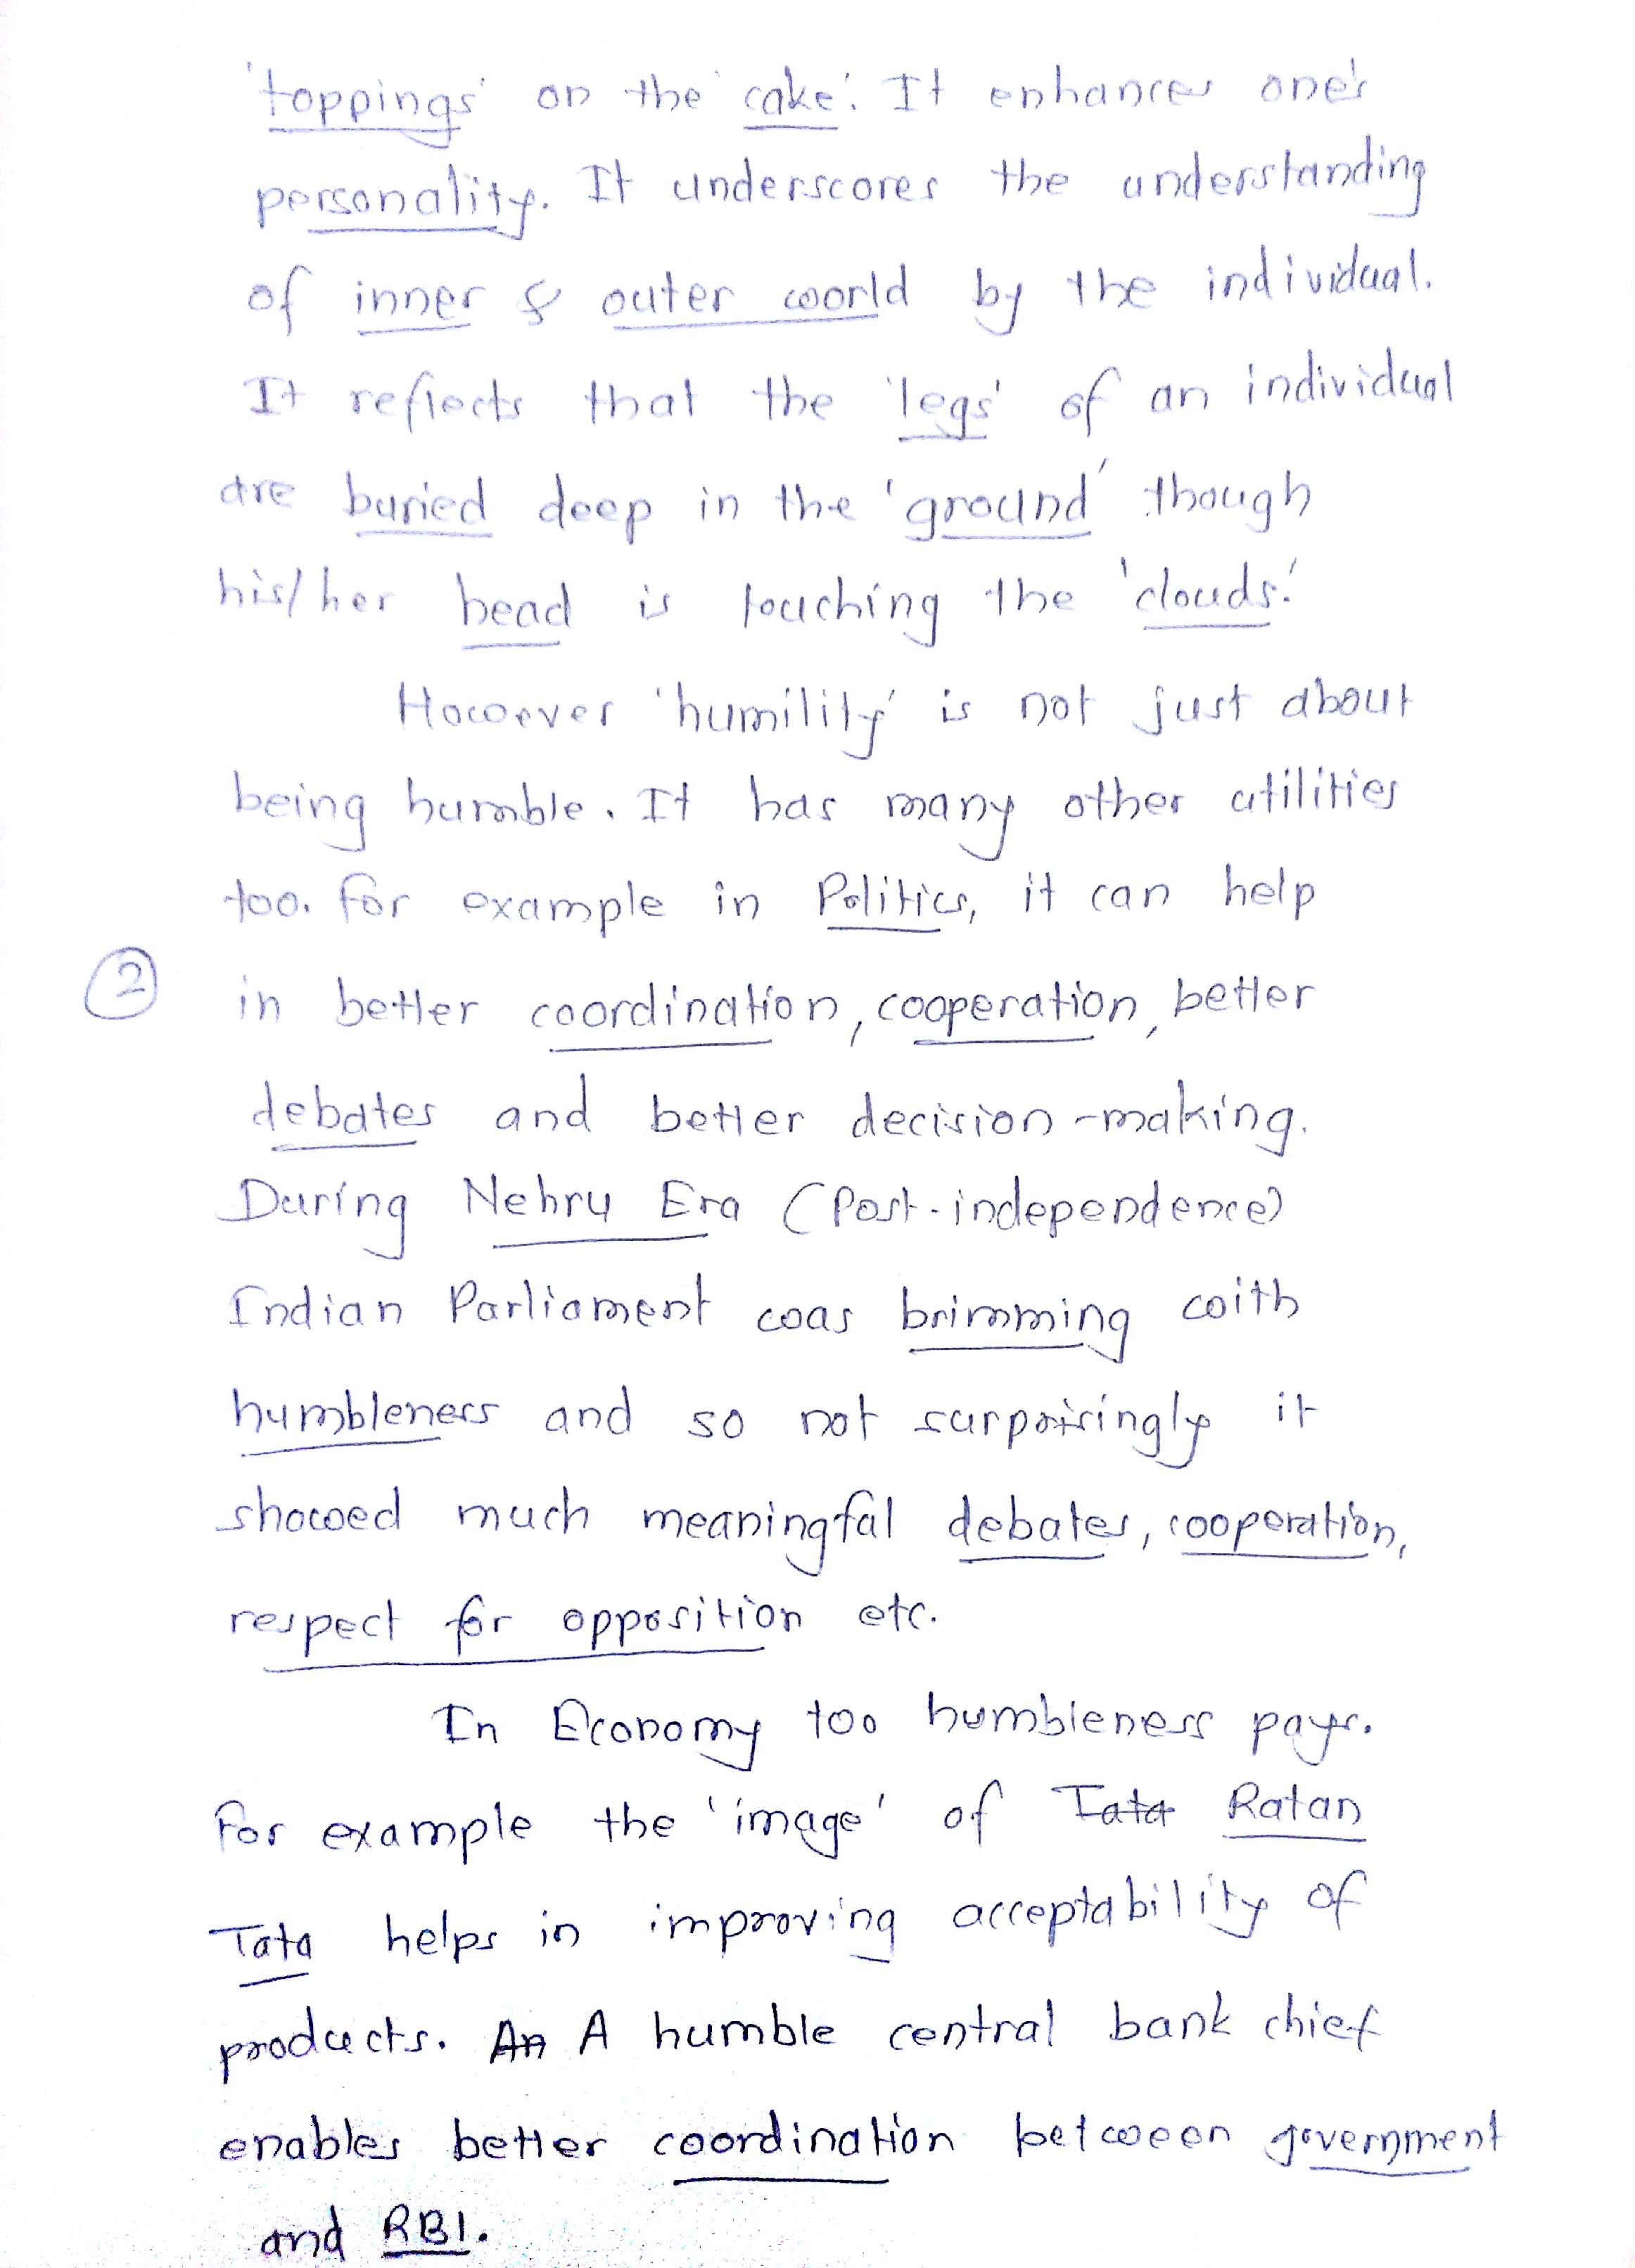 'toppings' on the 'cake'. It enhances one's
personality. It underscores the understanding
of inner & outer world by the individual.
It reflects that the 'legs' of an individual
are buried deep in the 'ground' though
his/her head is touching the 'clouds.'
However 'humility' is not just about
being humble. It has many other utilities
too. For example in Politics, it can help
② in better coordination, cooperation, better
debates and better decision-making.
During Nehru Era (Post-independence)
Indian Parliament was brimming with
humbleness and so not surprisingly it
showed much meaningful debates, cooperation,
respect for opposition etc.
In Economy too humbleness pays.
For example the 'image' of Tata Ratan
Tata helps in improving acceptability of
products. An A humble central bank chief
enables better coordination between government
and RBI.